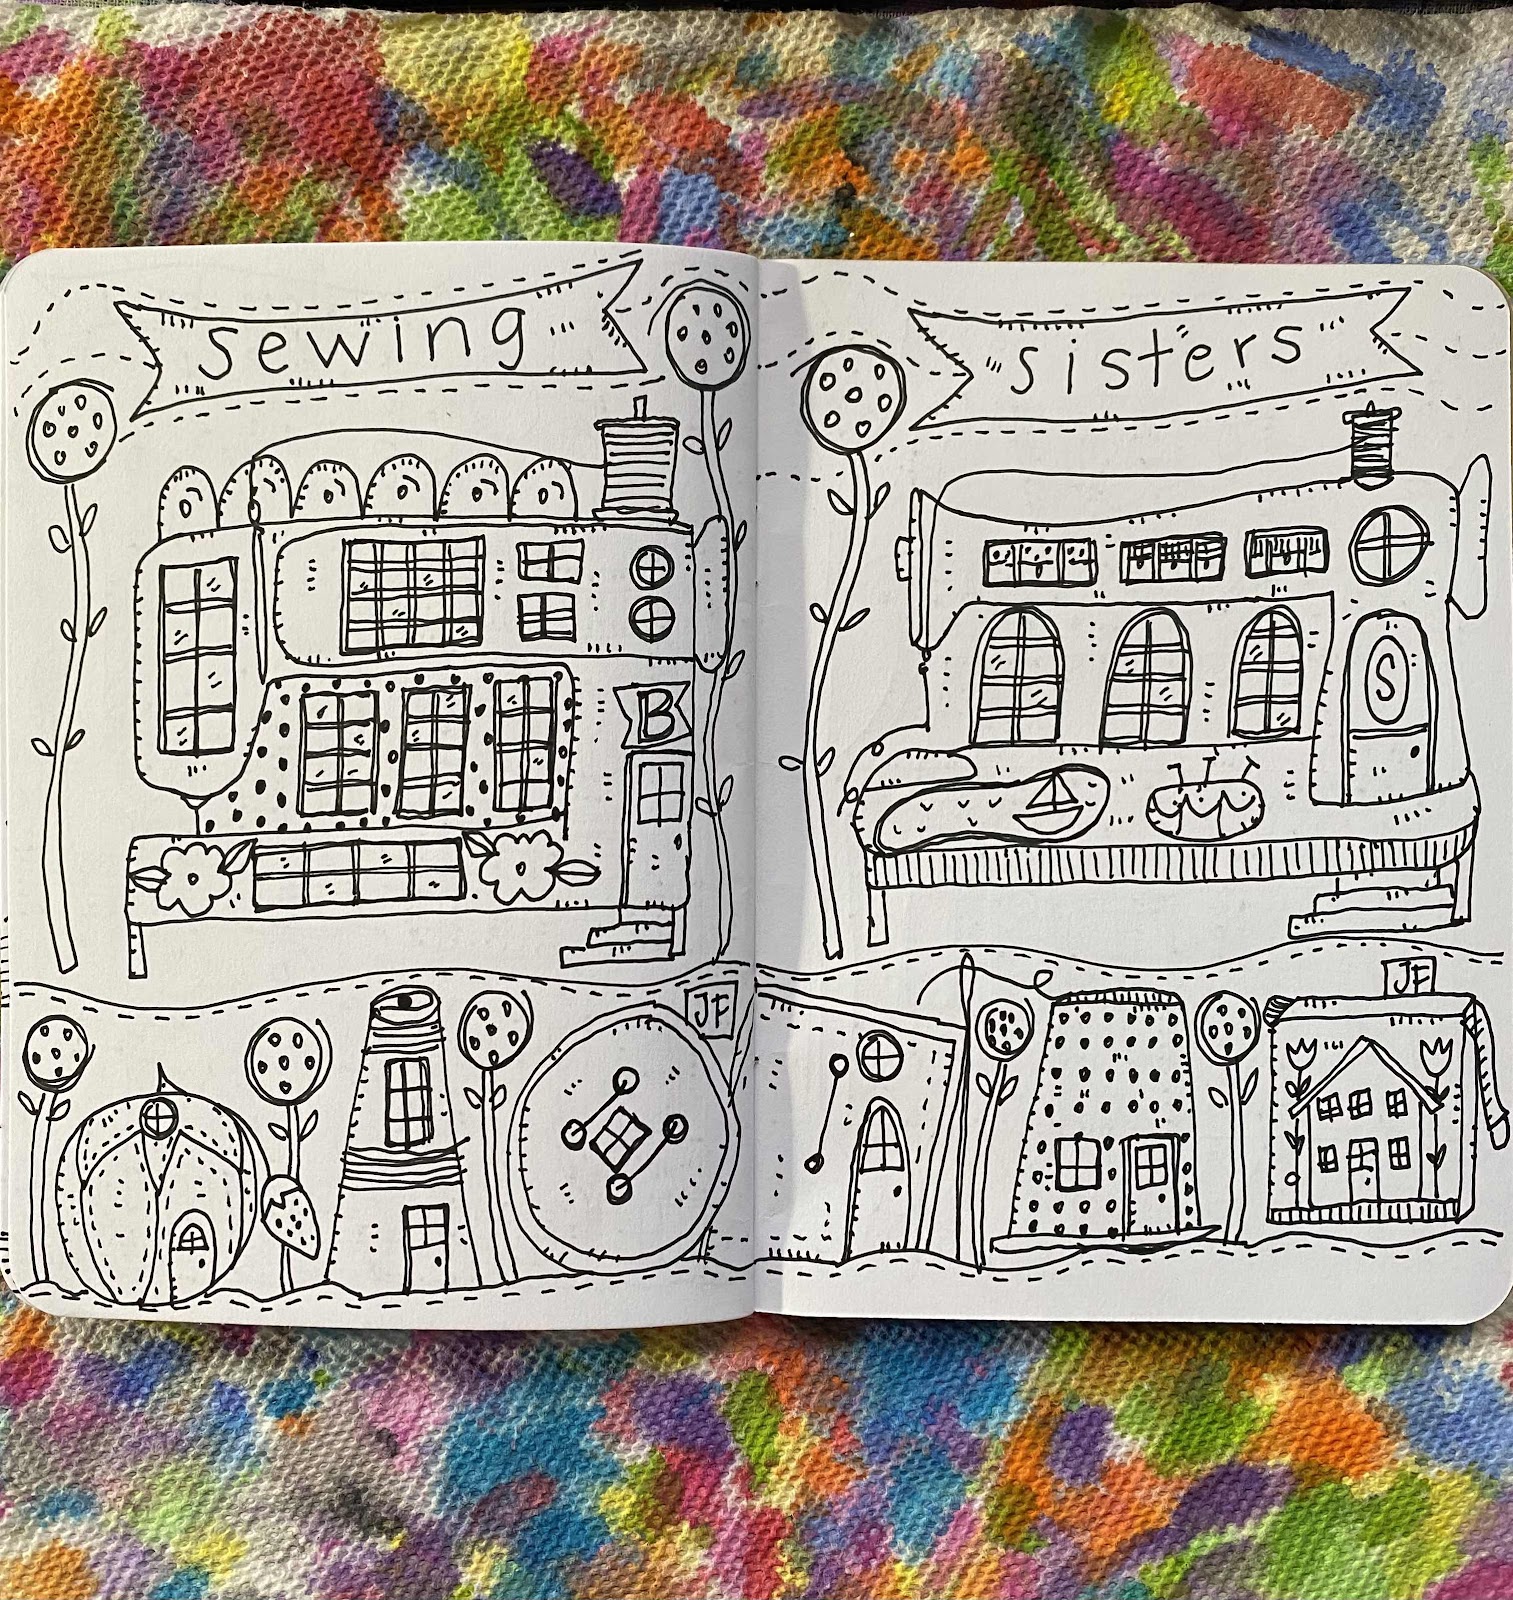 sewing
sisters
B
S
JF
JF